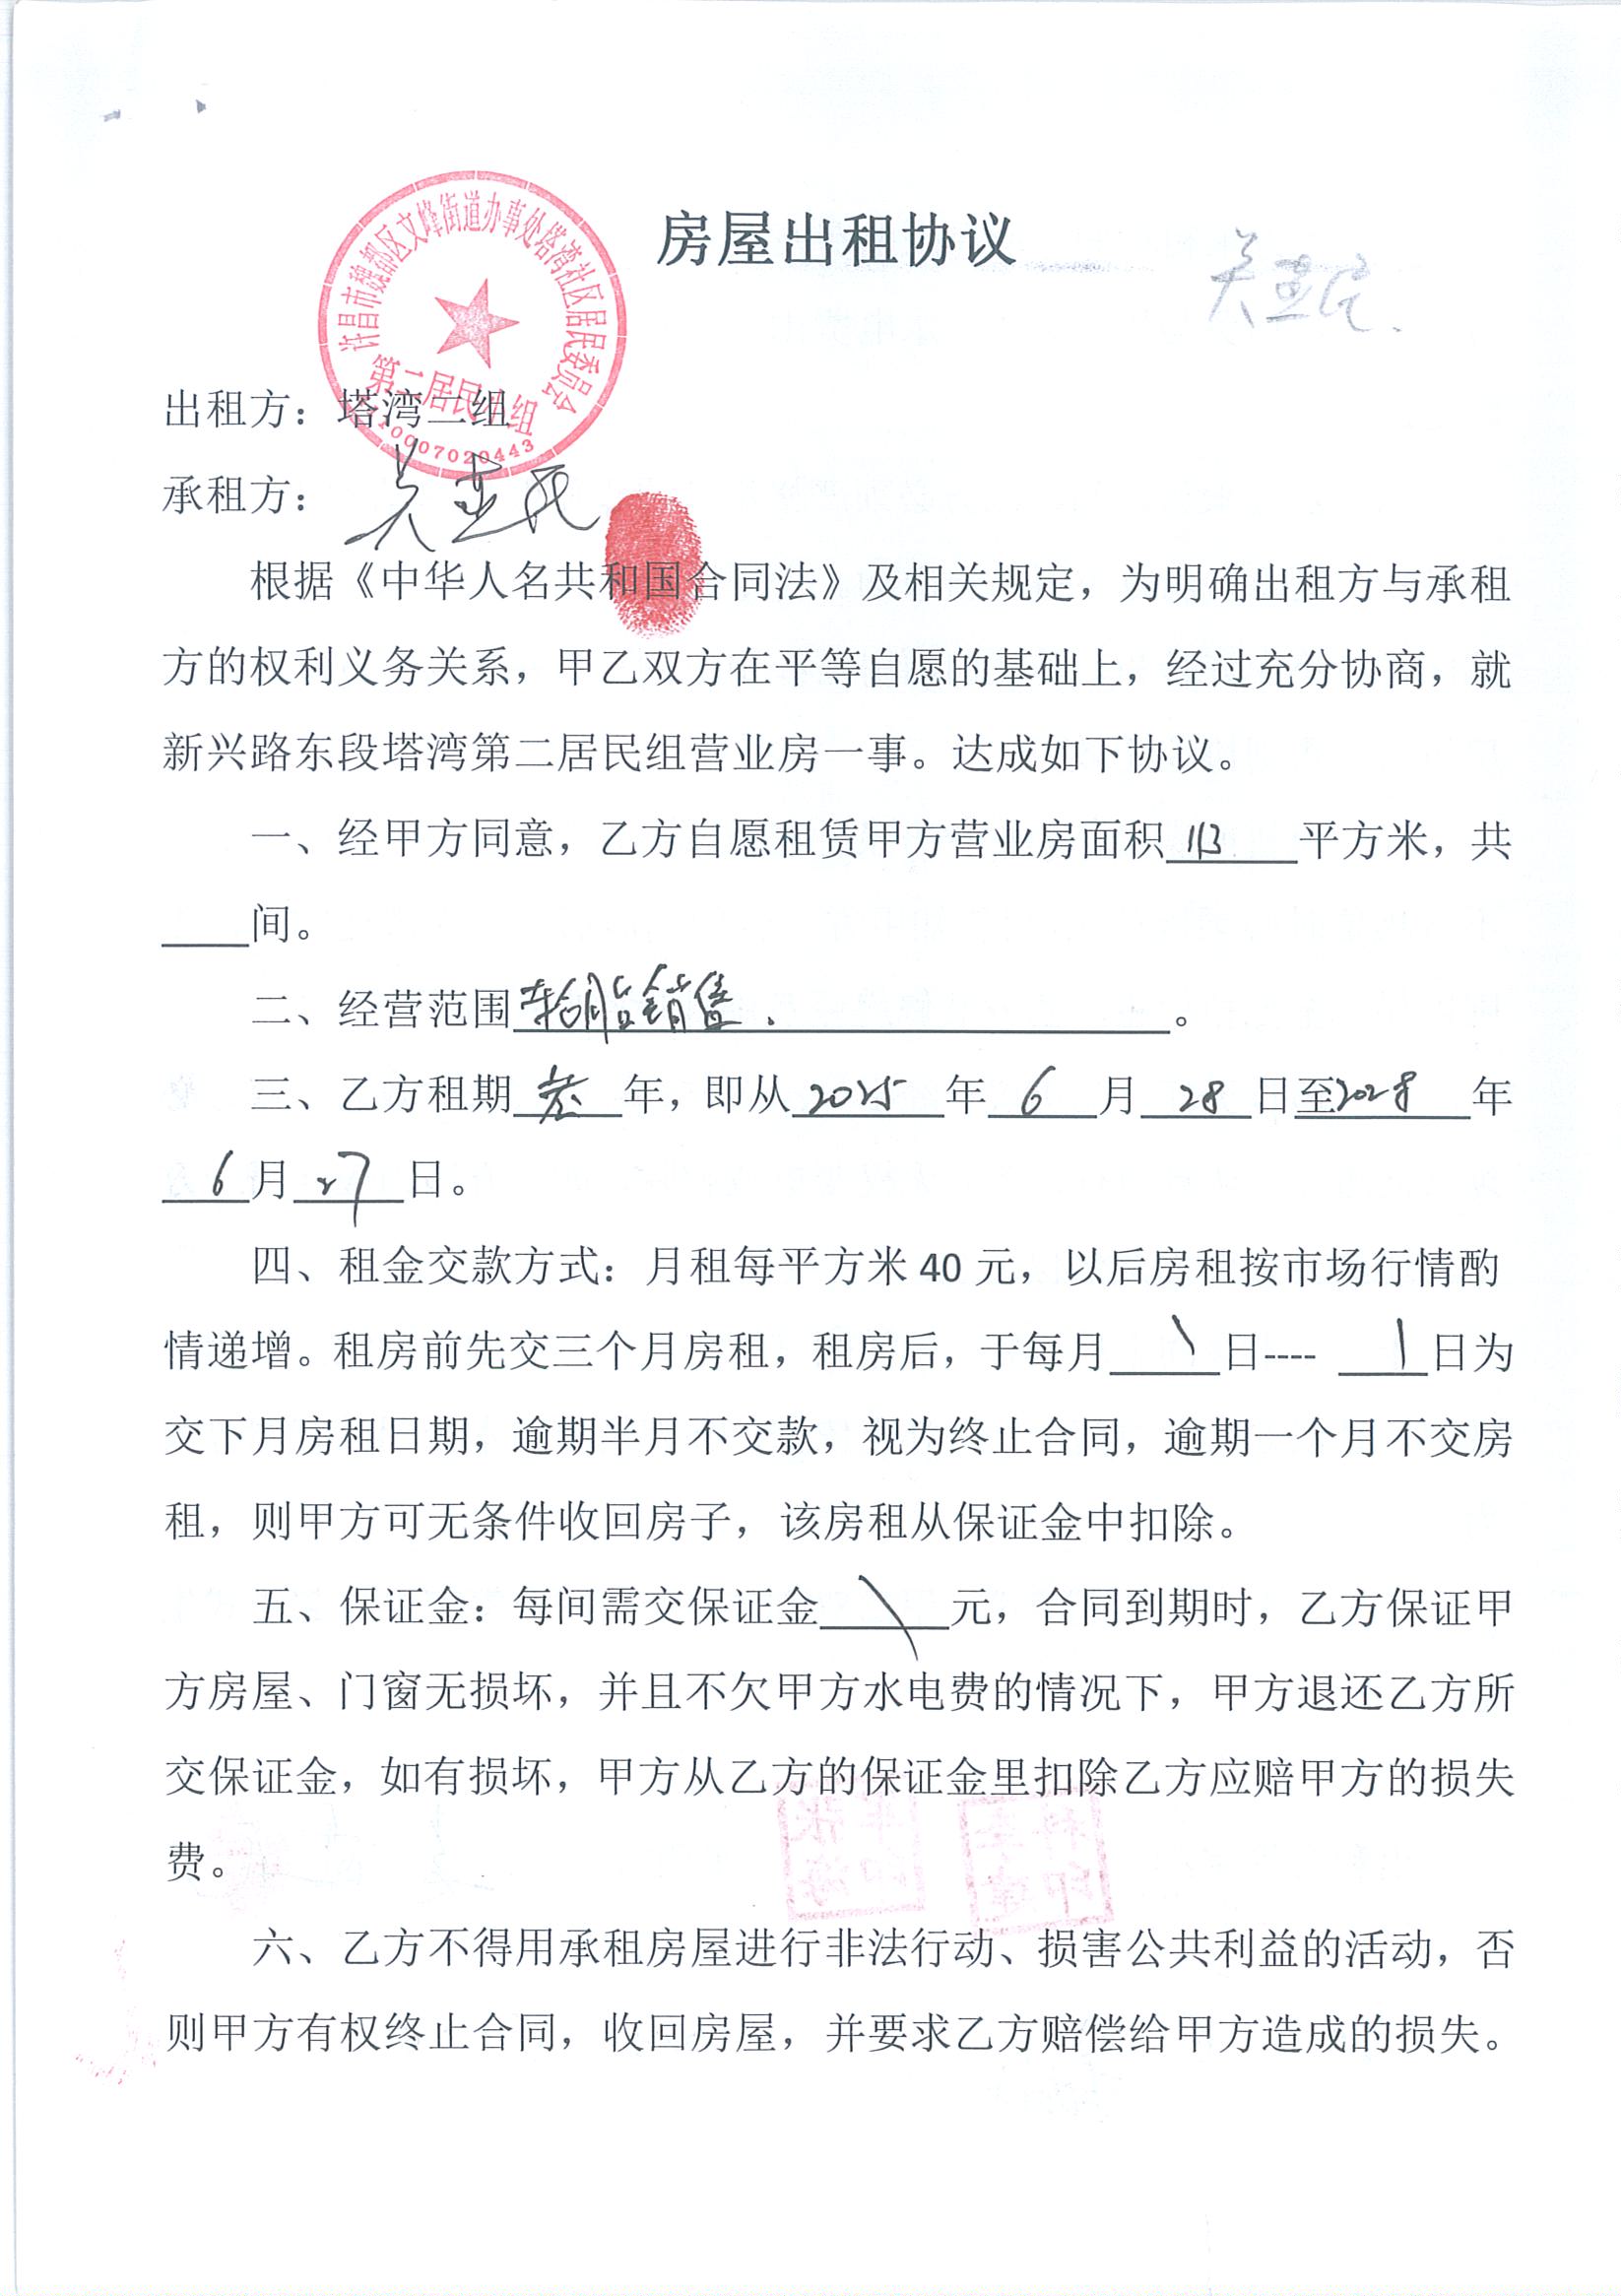 房屋出租协议
关亚民.
许昌市魏都区文峰街道办事处塔湾社区居民委员会
第二居民小组
10007020443
出租方：塔湾二组
承租方：关亚民
根据《中华人名共和国合同法》及相关规定，为明确出租方与承租
方的权利义务关系，甲乙双方在平等自愿的基础上，经过充分协商，就
新兴路东段塔湾第二居民组营业房一事。达成如下协议。
一、经甲方同意，乙方自愿租赁甲方营业房面积 113 平方米，共
____间。
二、经营范围轮胎销售.。
三、乙方租期 叁 年，即从 2025 年 6 月 28 日至2028 年
6 月 27 日。
四、租金交款方式：月租每平方米 40 元，以后房租按市场行情酌
情递增。租房前先交三个月房租，租房后，于每月 \ 日---- \ 日为
交下月房租日期，逾期半月不交款，视为终止合同，逾期一个月不交房
租，则甲方可无条件收回房子，该房租从保证金中扣除。
五、保证金：每间需交保证金 \ 元，合同到期时，乙方保证甲
方房屋、门窗无损坏，并且不欠甲方水电费的情况下，甲方退还乙方所
交保证金，如有损坏，甲方从乙方的保证金里扣除乙方应赔甲方的损失
费。
六、乙方不得用承租房屋进行非法行动、损害公共利益的活动，否
则甲方有权终止合同，收回房屋，并要求乙方赔偿给甲方造成的损失。